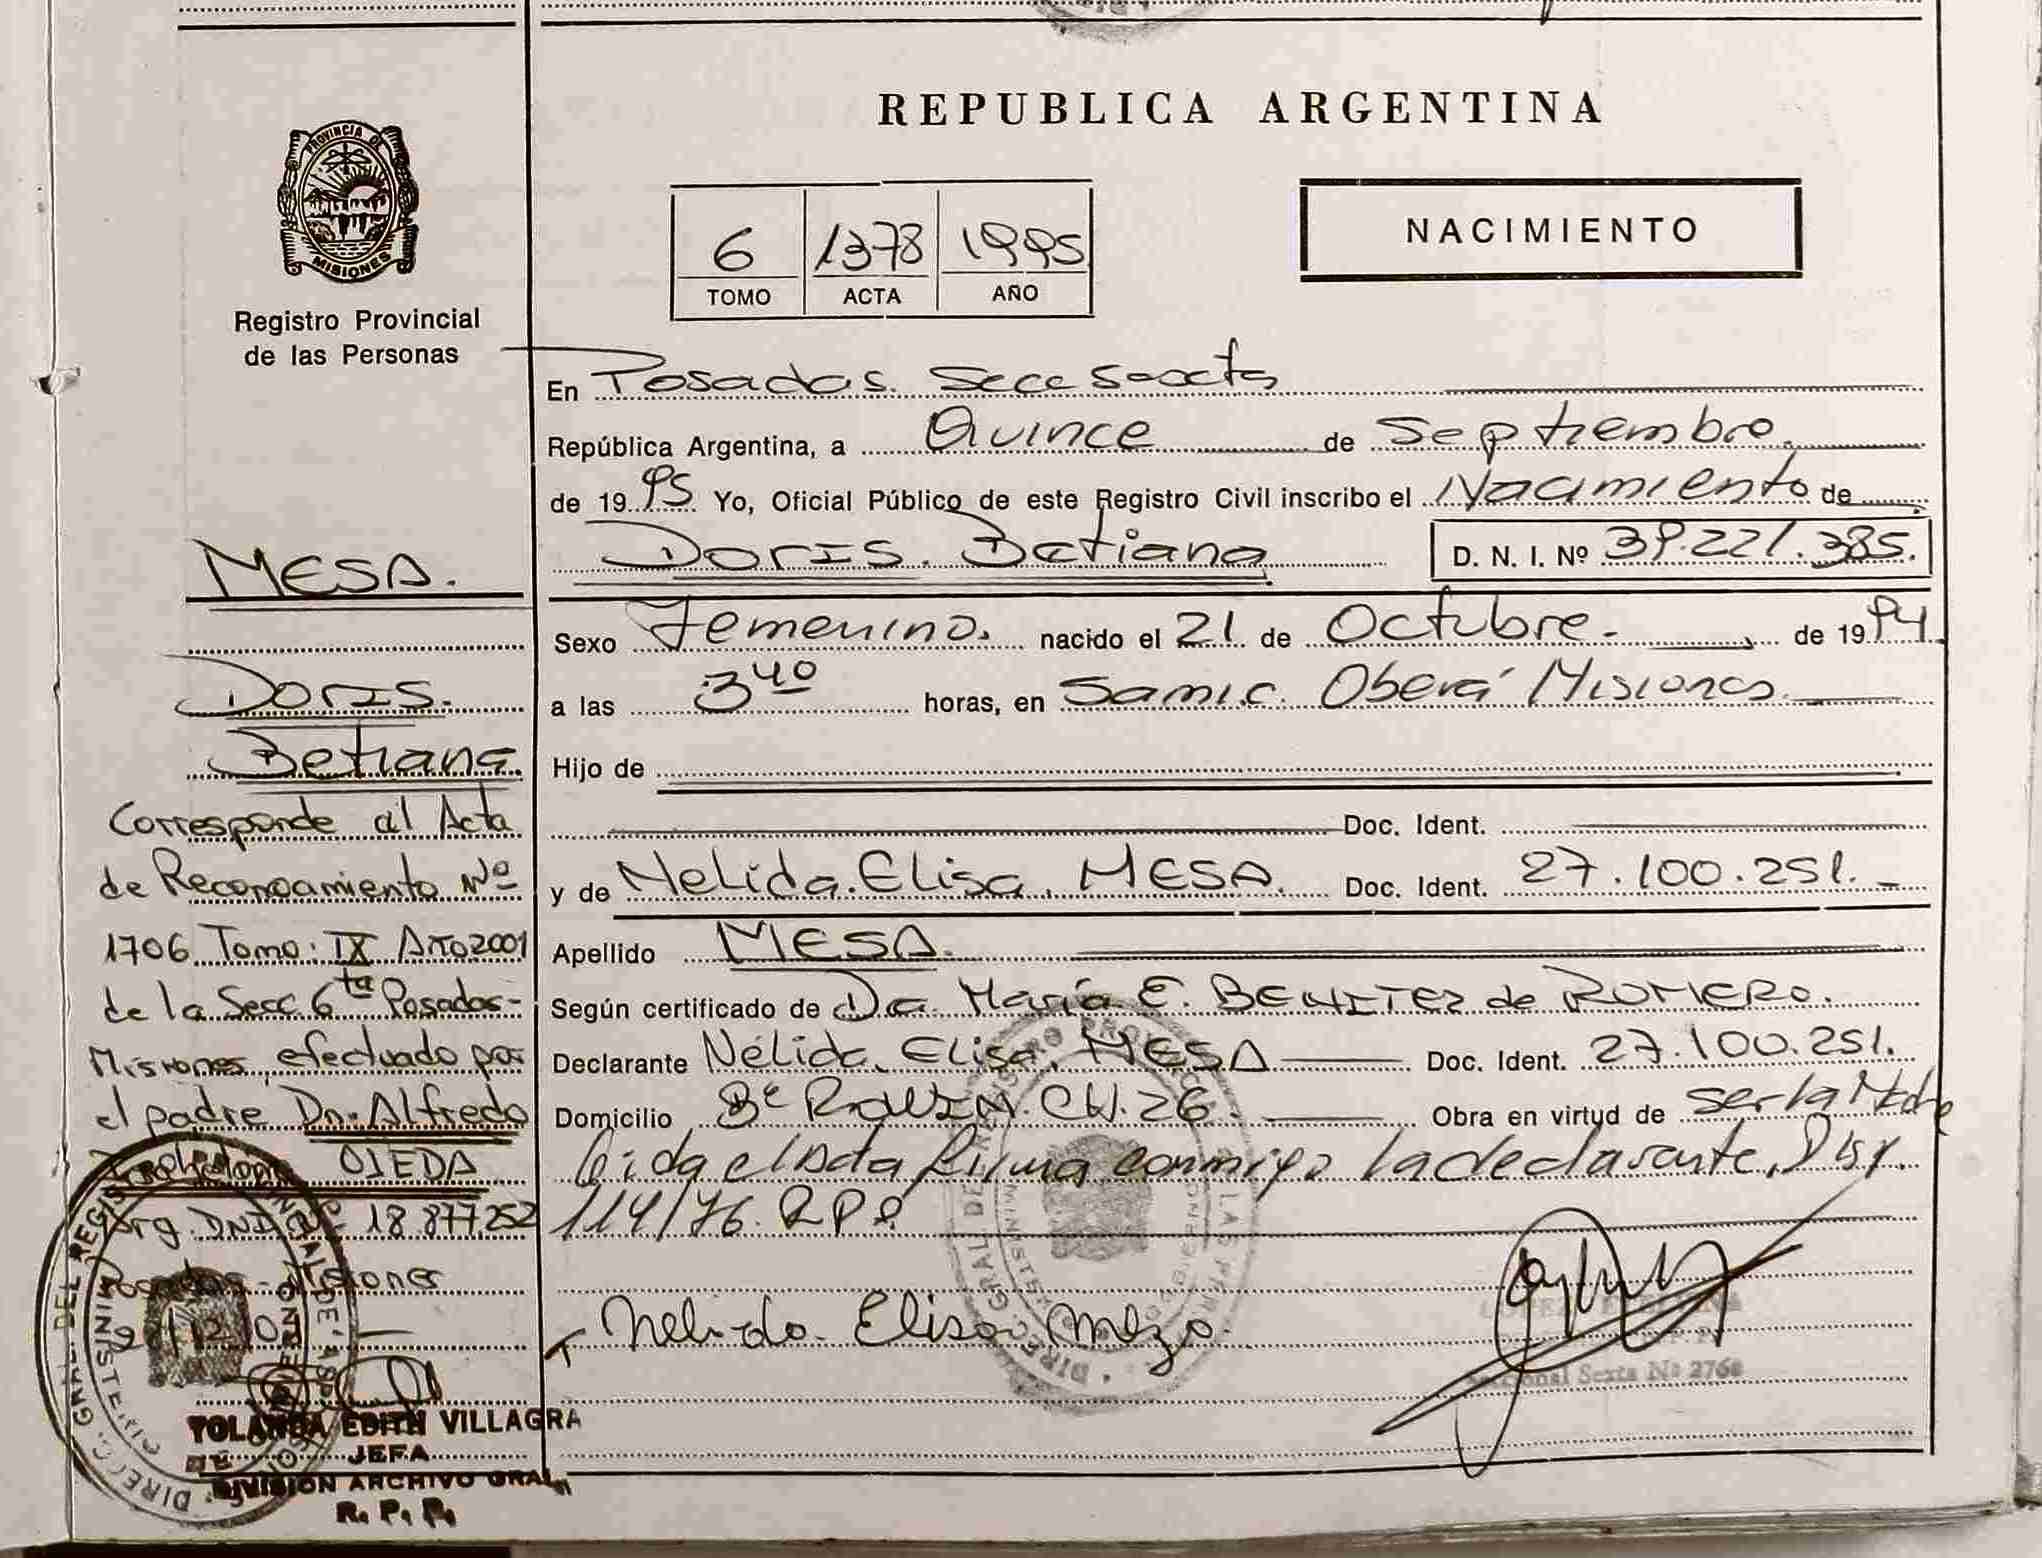 REPUBLICA ARGENTINA
PROVINCIA DE
MISIONES
Registro Provincial
de las Personas
6 1378 1995
TOMO ACTA AÑO
NACIMIENTO
En Posadas. Secc Sexta
República Argentina, a Quince de Septiembre.
de 1995 Yo, Oficial Público de este Registro Civil inscribo el Nacimiento de
Doris. Betiana D. N. I. Nº 39.221.385.
Sexo Femenino. nacido el 21 de Octubre. de 1994
a las 3 40 horas, en Samic. Oberá Misiones
Hijo de
Doc. Ident.
y de Nelida. Elisa. MESA. Doc. Ident. 27.100.251.
Apellido MESA.
Según certificado de Dra. María E. BENITEZ de ROMERO.
Declarante Nélida. Elisa. MESA Doc. Ident. 27.100.251.
Domicilio Bº CH. 26. Obra en virtud de ser la Madre
leida el Acta firma conmigo la declarante, Disp.
114/76. R.P.P.
Nelida. Elisa
Seccional Sexta Nº 2760
MESA.
Doris.
Betiana
Corresponde al Acta
de Reconocimiento Nº
1706 Tomo: IX Año 2001
de la Secc. 6ta Posadas-
Misiones, efectuado por
el padre Dn. Alfredo
OJEDA
Arg. DNI 18.877.252
Posadas - Misiones
YOLANDA EDITH VILLAGRA
JEFA
DIVISION ARCHIVO GRAL.
R. P. P.